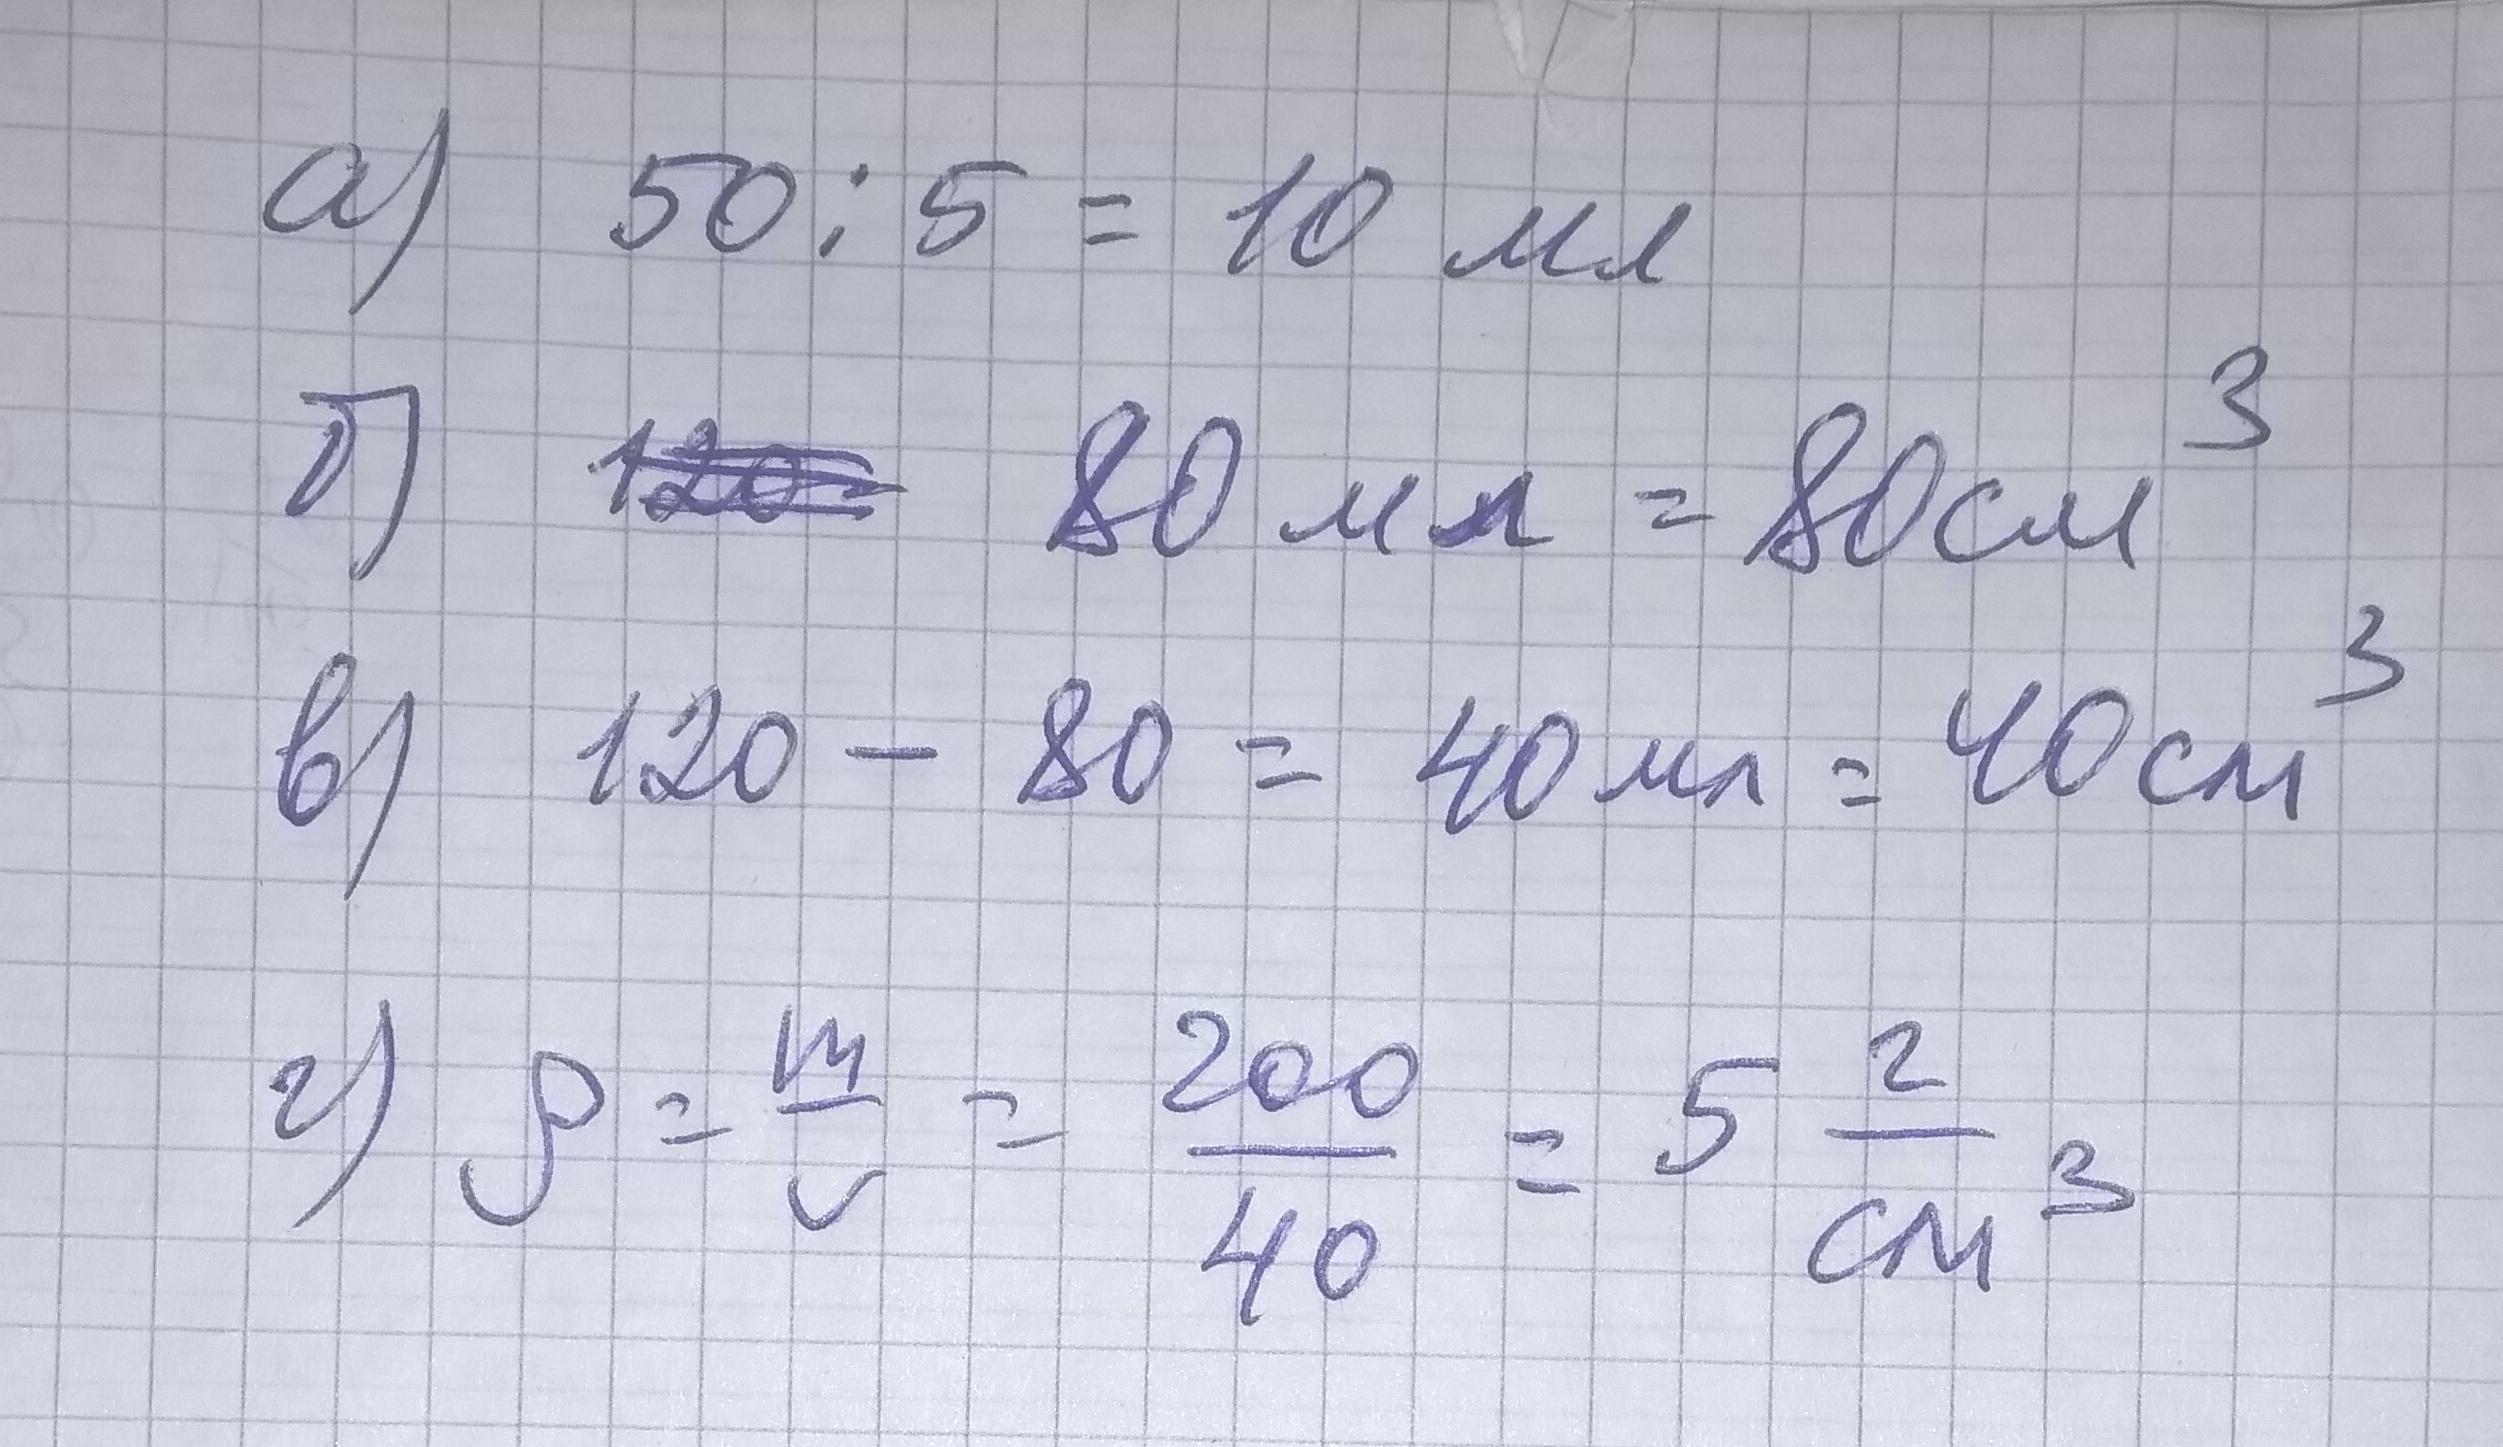 а) 50 : 5 = 10 мл
б) 120 - 80 мл = 80 см³
в) 120 - 80 = 40 мл = 40 см³
г) ρ = m/v = 200/40 = 5 г/см³